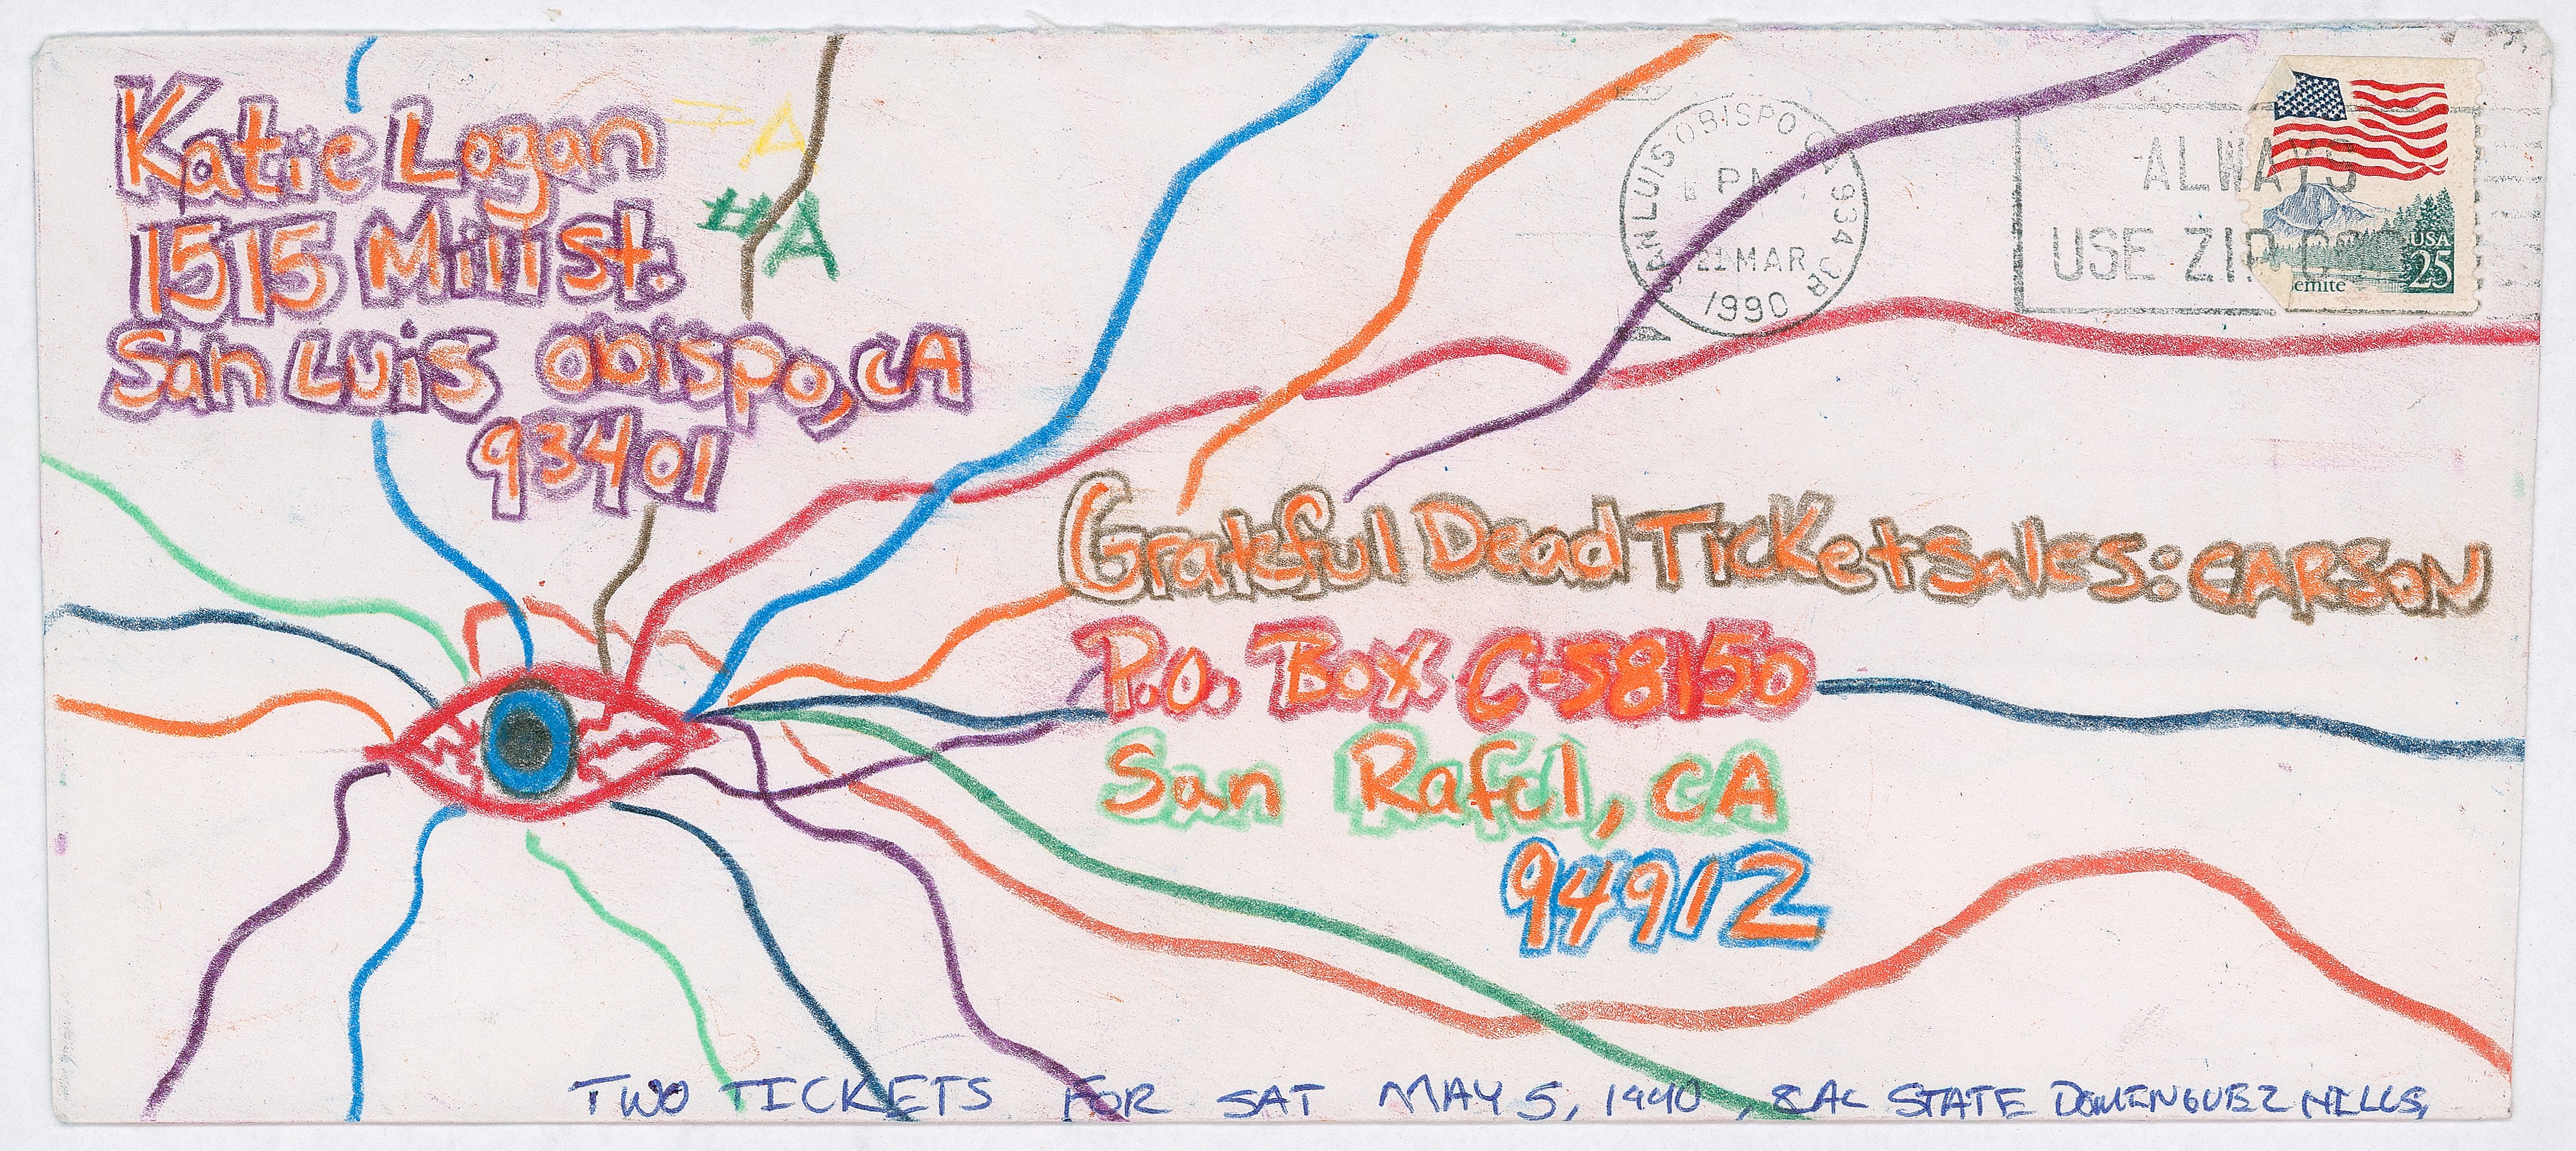 Katie Logan
1515 Mill St.
#A
San Luis Obispo, CA
93401
SAN LUIS OBISPO CA 934
PM
21 MAR
1990
ALWAYS
USE ZIP
USA
25
Grateful Dead Ticket Sales: CARSON
P.O. Box C-58150
San Rafel, CA
94912
TWO TICKETS FOR SAT MAY 5, 1990, CAL STATE DOMINGUEZ HILLS,